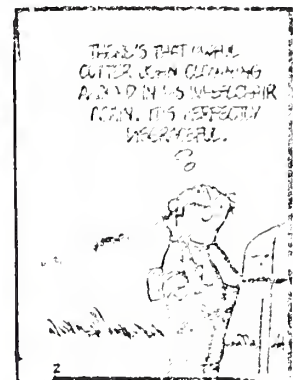 THERE'S THAT AWFUL
CUTTER JOHN CLOWNING
AROUND IN HIS WHEELCHAIR
AGAIN. IT'S PERFECTLY
DISGRACEFUL.
2